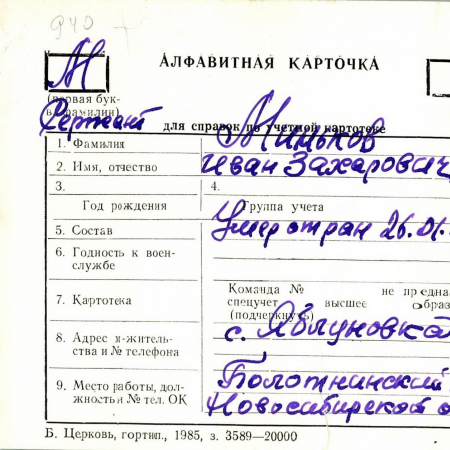 940
М
АЛФАВИТНАЯ КАРТОЧКА
(первая бук-
ва фамилии)
Сержант
для справок по учетной картотеке
1. Фамилия Миньков
2. Имя, отчество Иван Захарович
3.
Год рождения
4.
Группа учета
5. Состав Умер от ран 26.01.
6. Годность к воен-
службе
7. Картотека
Команда № не предна
спецучет высшее образ
(подчеркнуть)
8. Адрес м-житель-
ства и № телефона
с. Яблуновка
9. Место работы, дол-
жность и № тел. ОК
Болотнинский
Новосибирской о
Б. Церковь, гортип., 1985, з. 3589—20000